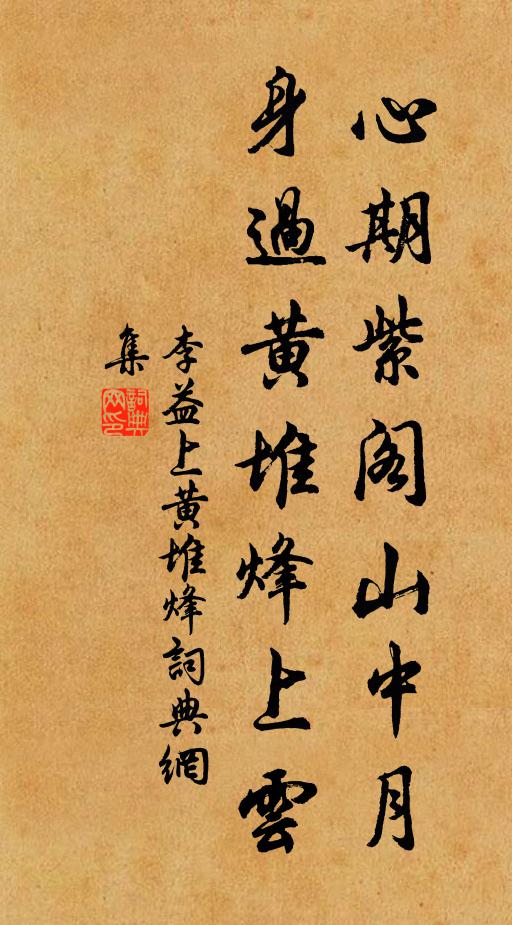 心期紫阁山中月
身過黄堆烽上雲
李益上黄堆烽詞典網
集
詞典网印